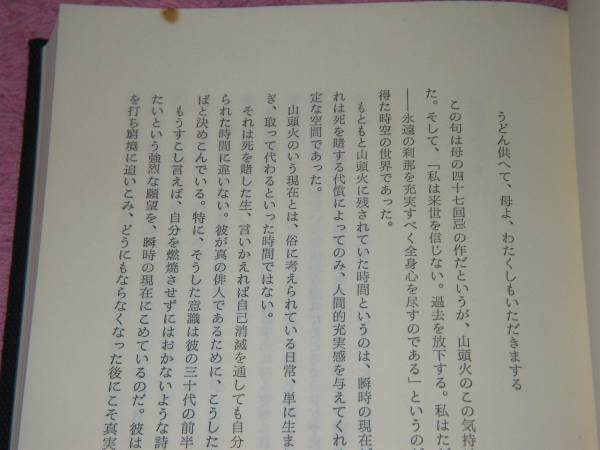 うどん供へて、母よ、わたくしもいただきまする
この句は母の四十七回忌の作だというが、山頭火のこの気持
た。そして、「私は来世を信じない。過去を放下する。私はただ
――永遠の刹那を充実すべく全身心を尽すのである」というのが
得た時空の世界であった。
もともと山頭火に残されていた時間というのは、瞬時の現在が
れは死を賭する代償によってのみ、人間的充実感を与えてくれる
定な空間であった。
山頭火のいう現在とは、俗に考えられている日常、単に生ま
ぎ、取って代わるといった時間ではない。
それは死を賭した生、言いかえれば自己消滅を通しても自分
られた時間に違いない。彼が真の俳人であるために、こうした
ばと決めこんでいる。特に、そうした意識は彼の三十代の前半
もうすこし言えば、自分を燃焼させずにはおかないような詩
たいという強烈な願望を、瞬時の現在にこめているのだ。彼は
を打ち窮境に追いこみ、どうにもならなくなった後にこそ真実